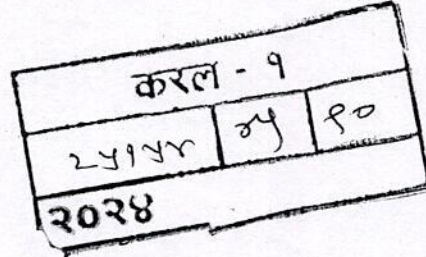 करल - १
२५१५४ ९०
२०२४